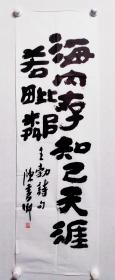 海内存知己天涯
若毗鄰
王勃詩句
陳